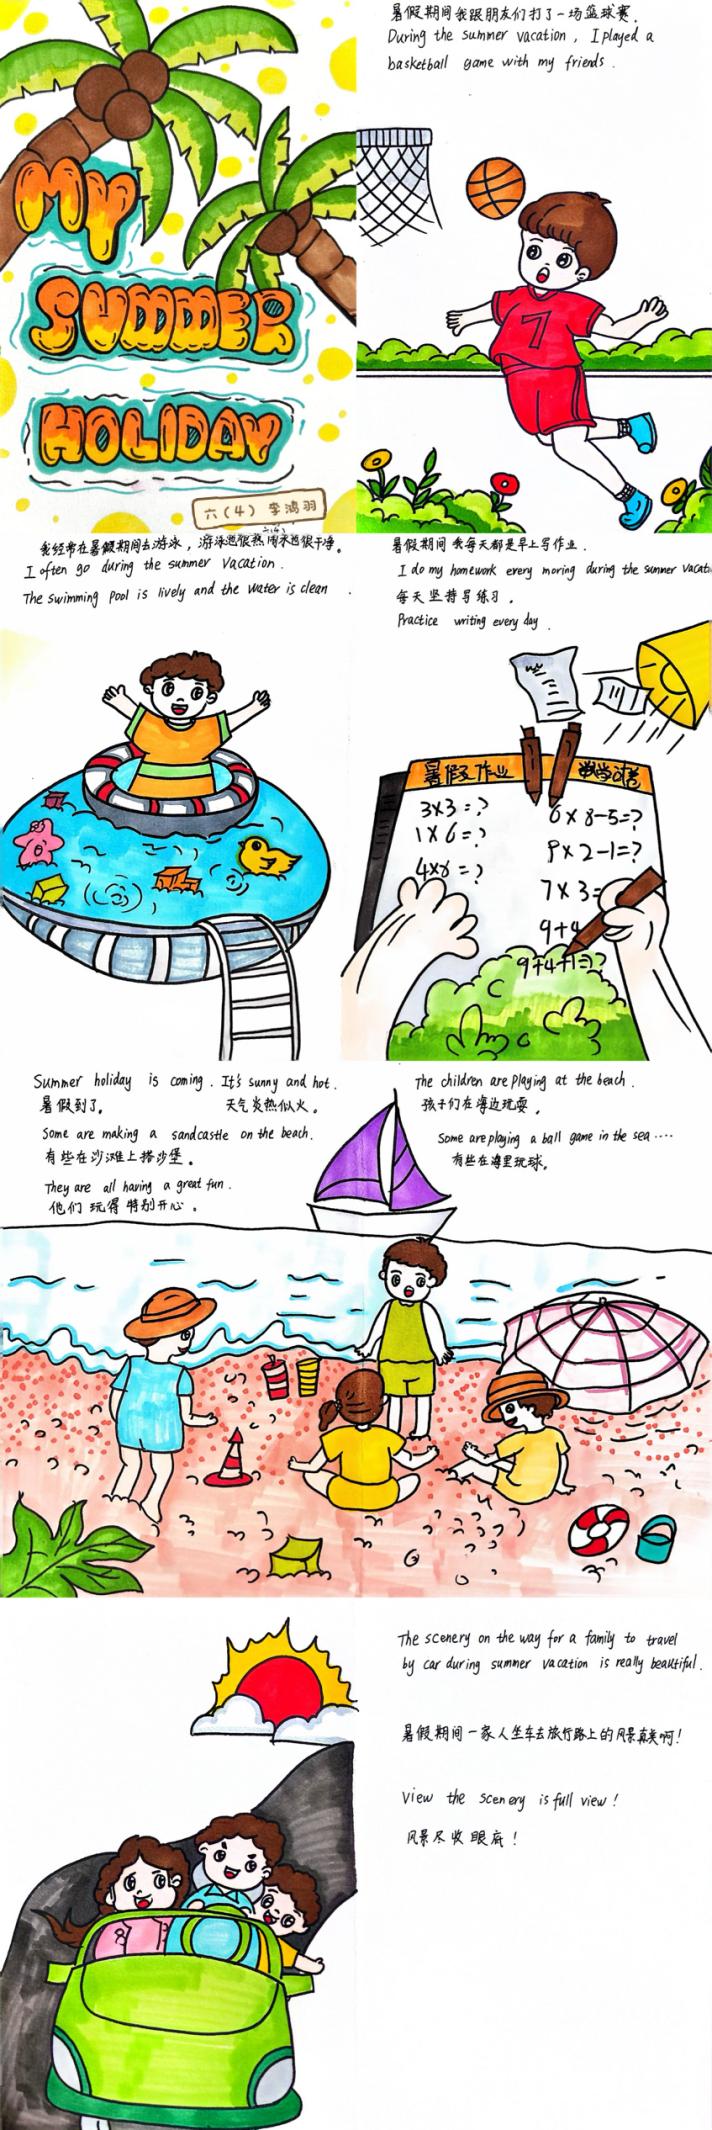 MY
SUMMER
HOLIDAY
六(4) 李鸿羽
暑假期间我跟朋友们打了一场篮球赛.
During the summer vacation, I played a
basketball game with my friends.
7
我经常在暑假期间去游泳，游泳池很热闹水池很干净。
I often go during the summer vacation.
The swimming pool is lively and the water is clean.
暑假期间我每天都是早上写作业.
I do my homework every moring during the summer vacati
每天坚持写练习.
Practice writing every day.
暑假作业
3×3=?
1×6=?
=?
6×8-5=?
9×2-1=?
7×3=
9+4
9+4+1=?
Summer holiday is coming. It's sunny and hot.
暑假到了。 天气炎热似火。
Some are making a sandcastle on the beach.
有些在沙滩上搭沙堡。
They are all having a great fun.
他们玩得特别开心。
The children are playing at the beach.
孩子们在海边玩耍。
Some are playing a ball game in the sea....
有些在海里玩球。
The scenery on the way for a family to travel
by car during summer vacation is really beautiful.
暑假期间一家人坐车去旅行路上的风景真美啊!
View the scenery is full view!
风景尽收眼底!